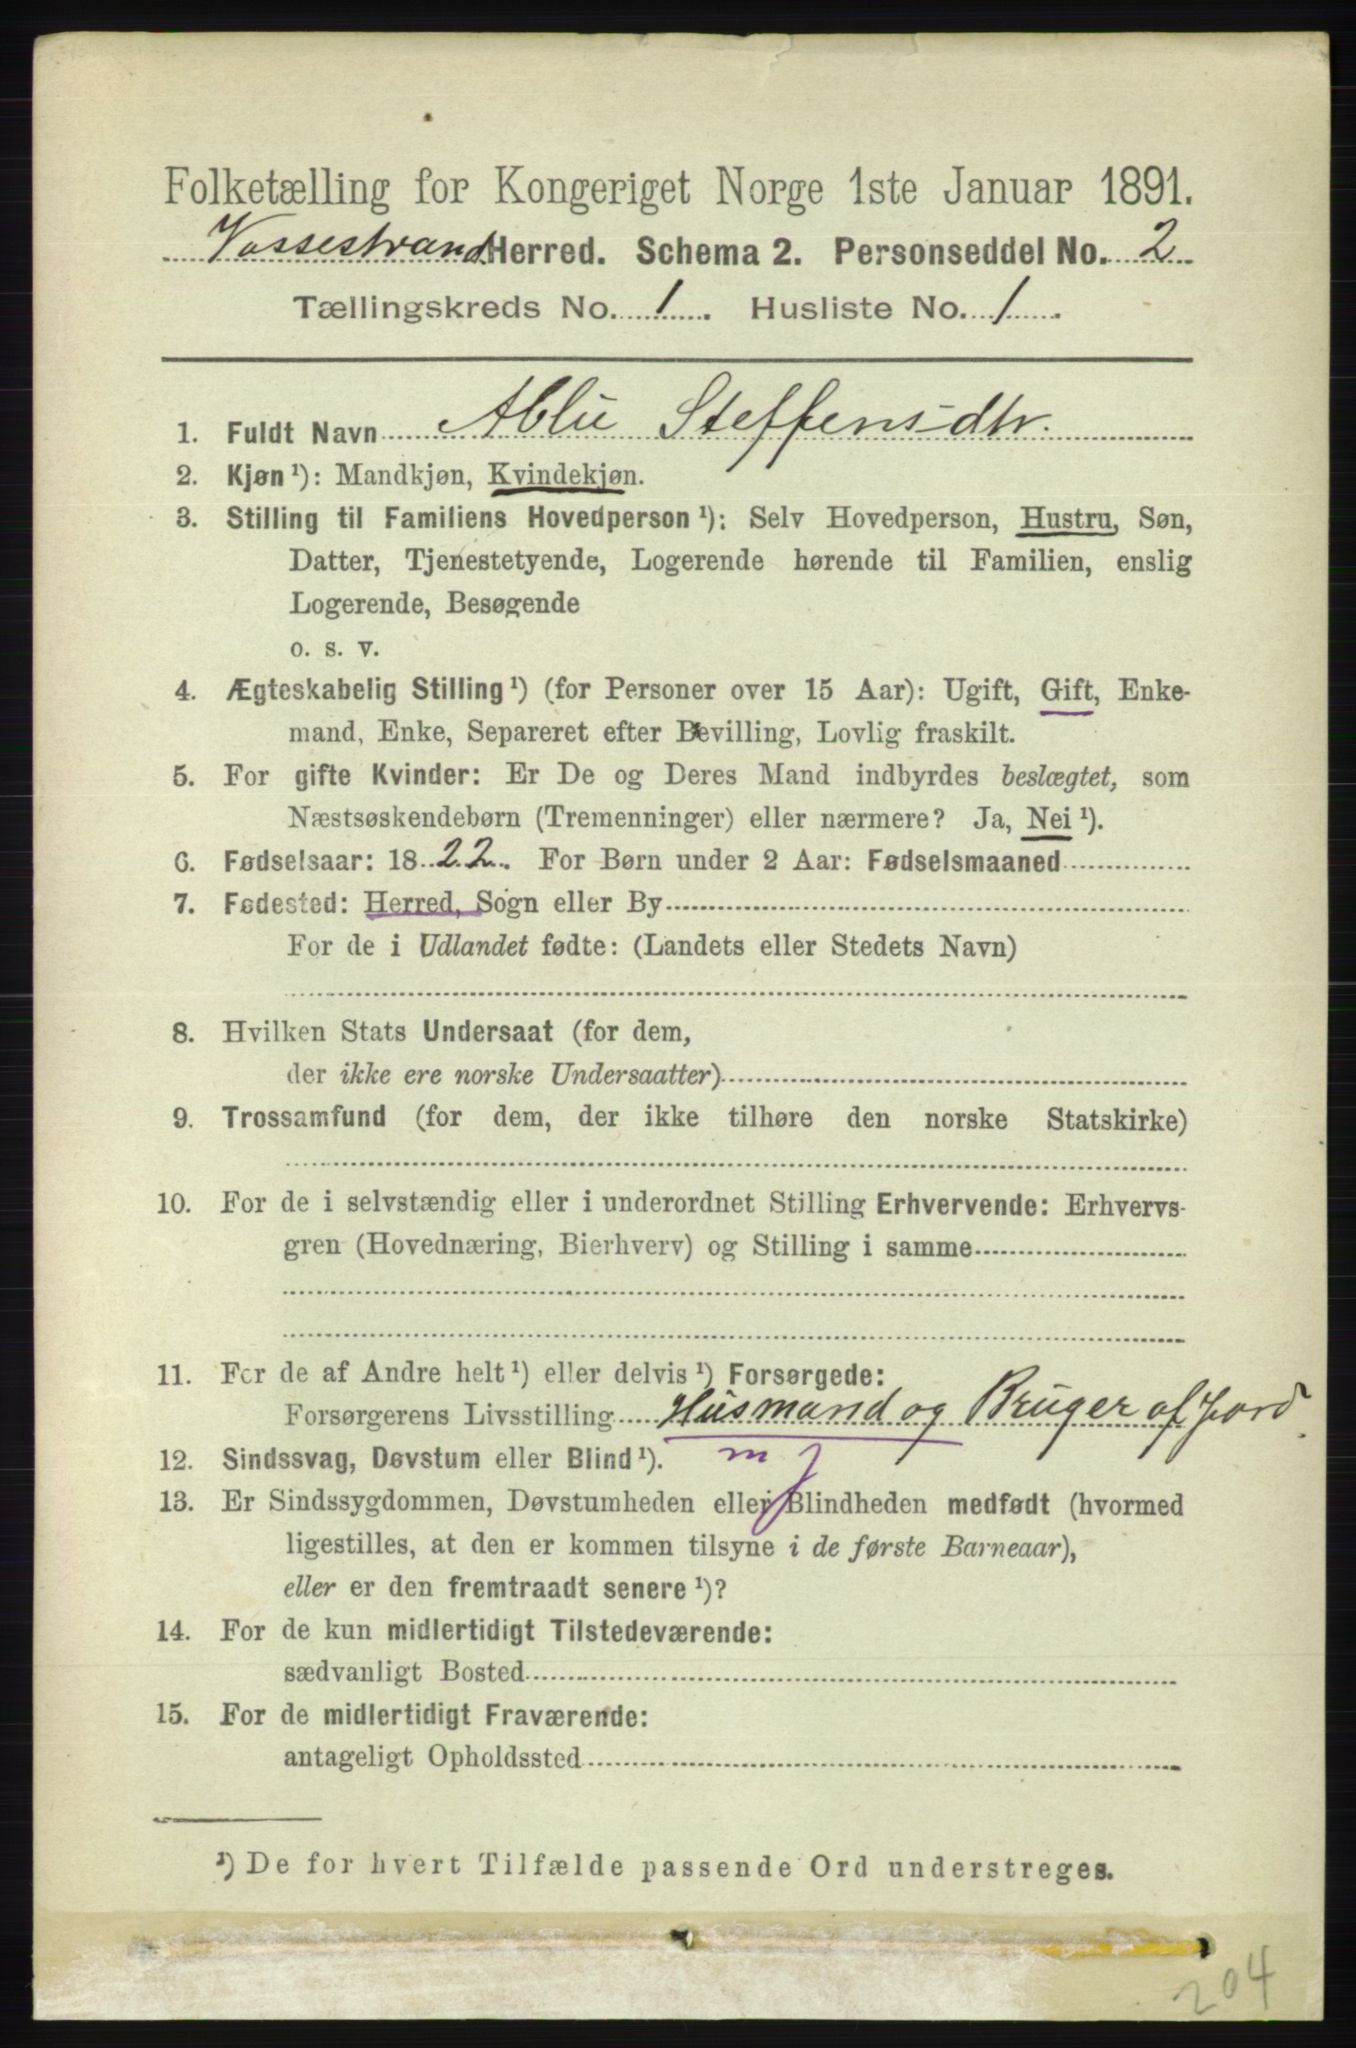 Folketælling for Kongeriget Norge 1ste Januar 1891.
Vossestrand Herred. Schema 2. Personseddel No. 2
Tællingskreds No. 1. Husliste No. 1.
1. Fuldt Navn Steffensdtr.
2. Kjøn ¹): Mandkjøn, Kvindekjøn.
3. Stilling til Familiens Hovedperson ¹): Selv Hovedperson, Hustru, Søn,
Datter, Tjenestetyende, Logerende hørende til Familien, enslig
Logerende, Besøgende
o. s. v.
4. Ægteskabelig Stilling ¹) (for Personer over 15 Aar): Ugift, Gift, Enke-
mand, Enke, Separeret efter Bevilling, Lovlig fraskilt.
5. For gifte Kvinder: Er De og Deres Mand indbyrdes beslægtet, som
Næstsøskendebørn (Tremenninger) eller nærmere? Ja, Nei ¹).
6. Fødselsaar: 18 22. For Børn under 2 Aar: Fødselsmaaned
7. Fødested: Herred, Sogn eller By
For de i Udlandet fødte: (Landets eller Stedets Navn)
8. Hvilken Stats Undersaat (for dem,
der ikke ere norske Undersaatter)
9. Trossamfund (for dem, der ikke tilhøre den norske Statskirke)
10. For de i selvstændig eller i underordnet Stilling Erhvervende: Erhvervs-
gren (Hovednæring, Bierhverv) og Stilling i samme
11. For de af Andre helt ¹) eller delvis ¹) Forsørgede:
Forsørgerens Livsstilling Husmand og Bruger af Jord
12. Sindssvag, Døvstum eller Blind ¹). m j
13. Er Sindssygdommen, Døvstumheden eller Blindheden medfødt (hvormed
ligestilles, at den er kommen tilsyne i de første Barneaar),
eller er den fremtraadt senere ¹)?
14. For de kun midlertidigt Tilstedeværende:
sædvanligt Bosted
15. For de midlertidigt Fraværende:
antageligt Opholdssted
¹) De for hvert Tilfælde passende Ord understreges.
204